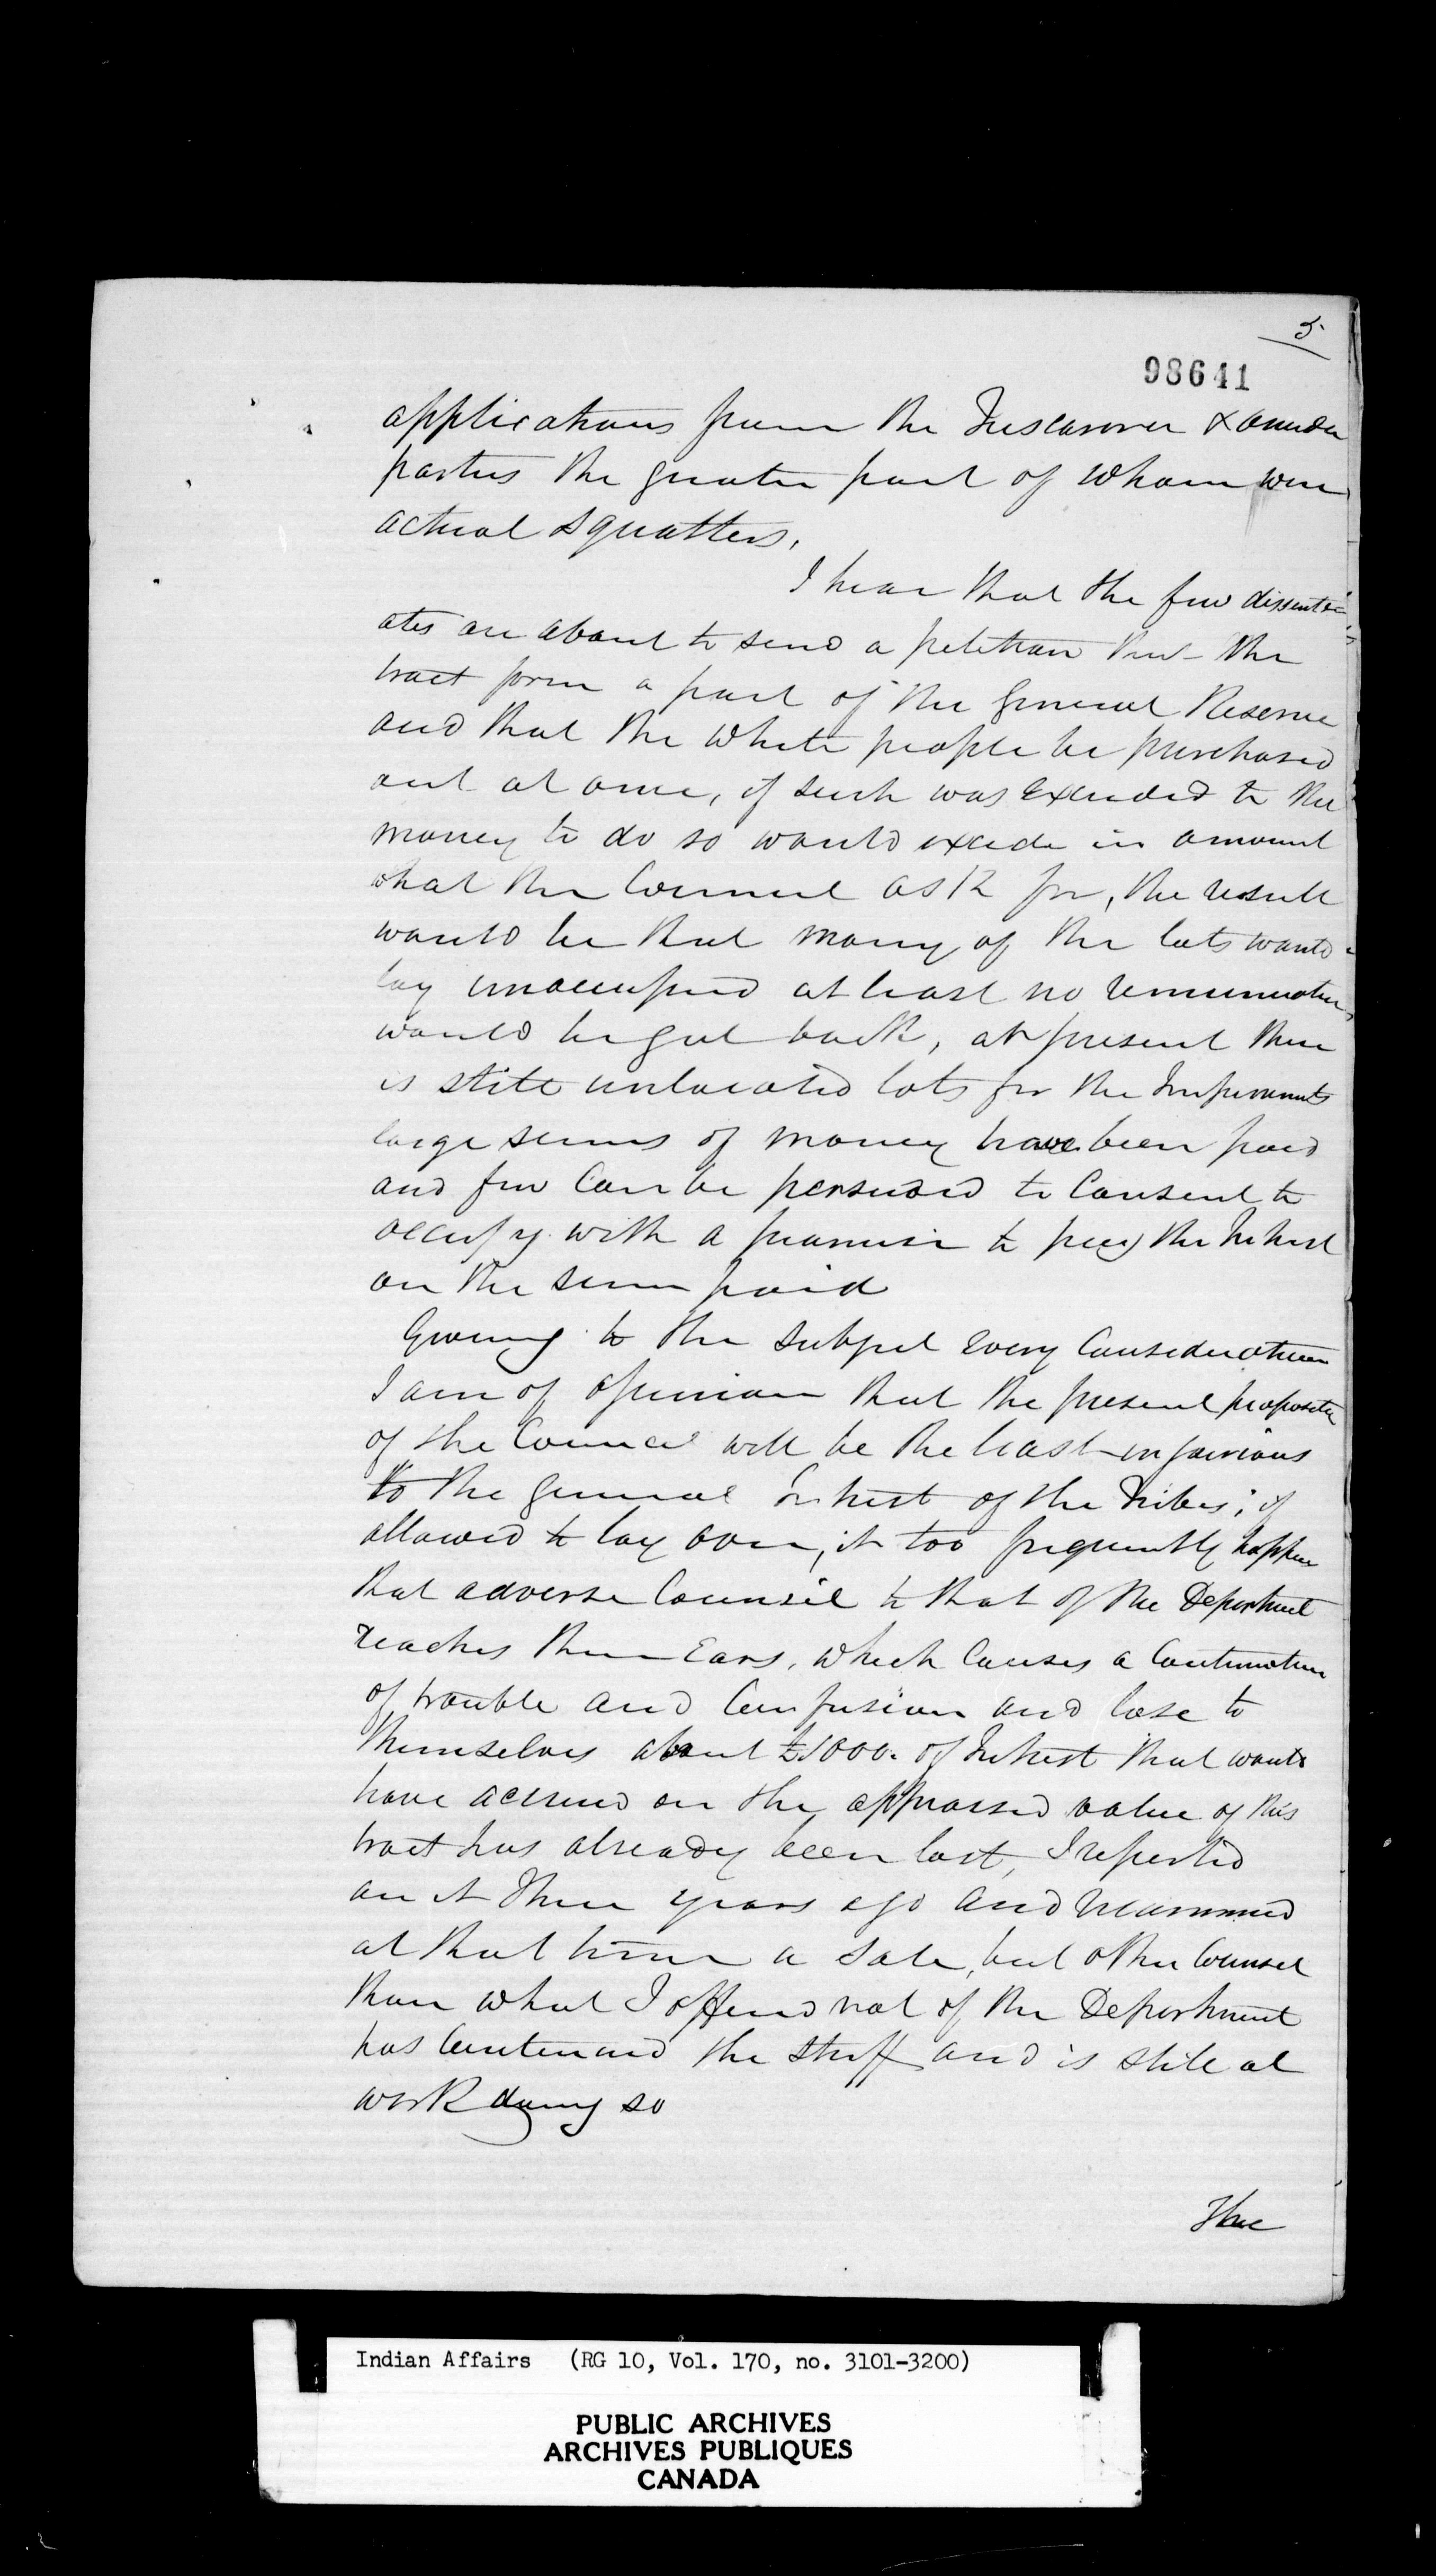 5
98641
applications from the Tuscarora & Onida
parties the greater part of whom were
actual squatters,
I hear that the few dissenti
ates are about to send a petition that the
tract form a part of the General Reserve
and that the white people be purchased
out at once, if such was exceeded to the
money to do so would excede in amount
what the Council ask for, the result
would be that many of the lots would
lay unoccupied at least no remuneration
would be got back, at present there
is still unlocated lots for the Improvements
large sums of money have been paid
and few can be persuaded to Consent to
occupy with a promise to pay the Intrest
on the sum paid
Giveing to the subject every Consideration
I am of opinion that the present proposition
of the Council will be the least injurious
to the general Intrest of the Tribes; if
allowed to lay over, it too frequently happen
that adverse Counsil to that of the Department
reaches their Ears, which causes a Continuation
of trouble and Confusion and lose to
themselves about £1000. of Intrest that would
have accrued on the appraised value of this
tract has already been lost, I reported
on it three years ago and recommend
at that time a sale, but other Counsel
than what I offered not of the Department
has Continued the stuff and is still at
work doing so
The
Indian Affairs (RG 10, Vol. 170, no. 3101-3200)
PUBLIC ARCHIVES
ARCHIVES PUBLIQUES
CANADA